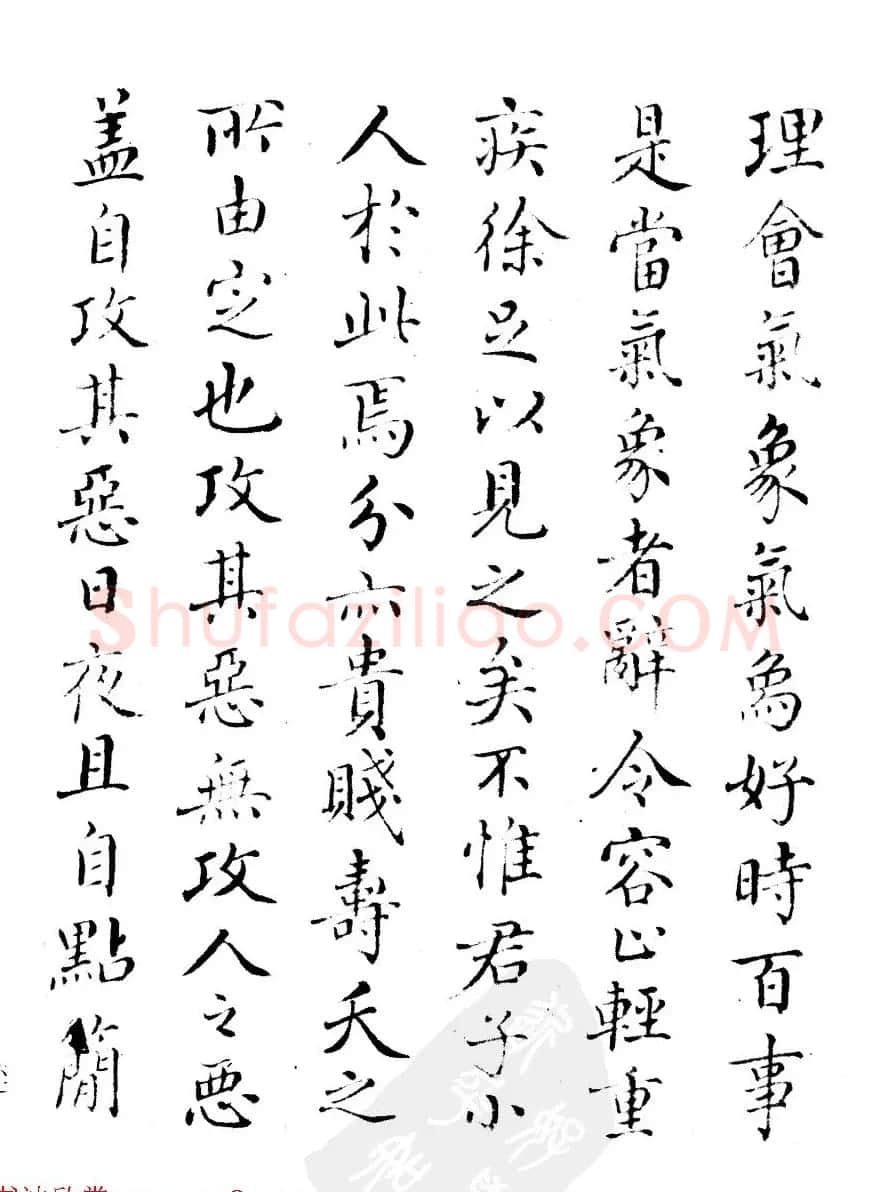 理會氣象氣象好時百事
是當氣象者辭令容止輕重
疾徐足以見之矣不惟君子小
人於此焉分亦貴賤壽夭之
所由定也攻其惡無攻人之悪
盖自攻其惡日夜且自點簡
Shufaziliao.COM